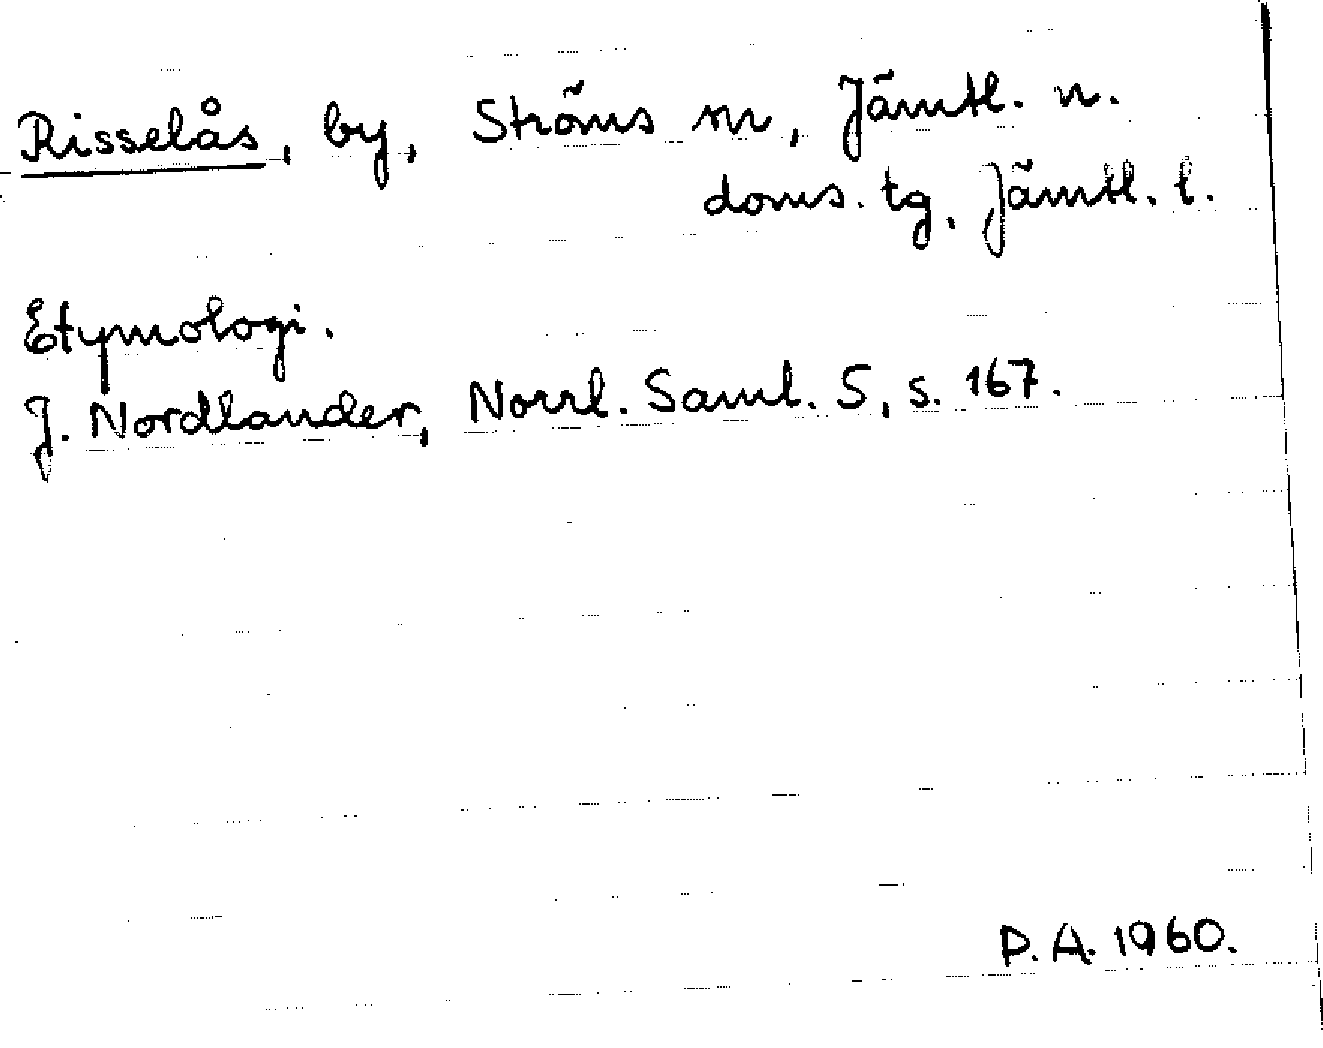 Risselås, by, Ströms sn, Jämtl. n.
doms. tg, Jämtl. l.
Etymologi.
J. Nordlander, Norrl. Saml. 5, s. 167.
P.A. 1960.